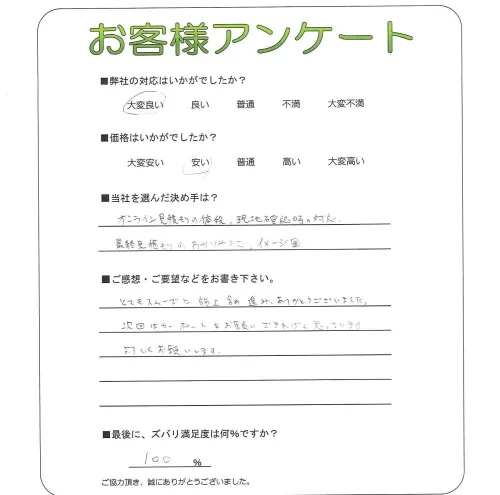 お客様アンケート
■弊社の対応はいかがでしたか？
大変良い 良い 普通 不満 大変不満
■価格はいかがでしたか？
大変安い 安い 普通 高い 大変高い
■当社を選んだ決め手は？
オンライン見積もりの価格、現地確認時の対応、
最終見積もりのわかりやすさ、イメージ図
■ご感想・ご要望などをお書き下さい。
とてもスムーズに 施工含め 進み、ありがとうございました。
次回はカーポートをお願いできればと思っています
よろしくお願いします。
■最後に、ズバリ満足度は何%ですか？
100 %
ご協力頂き、誠にありがとうございました。